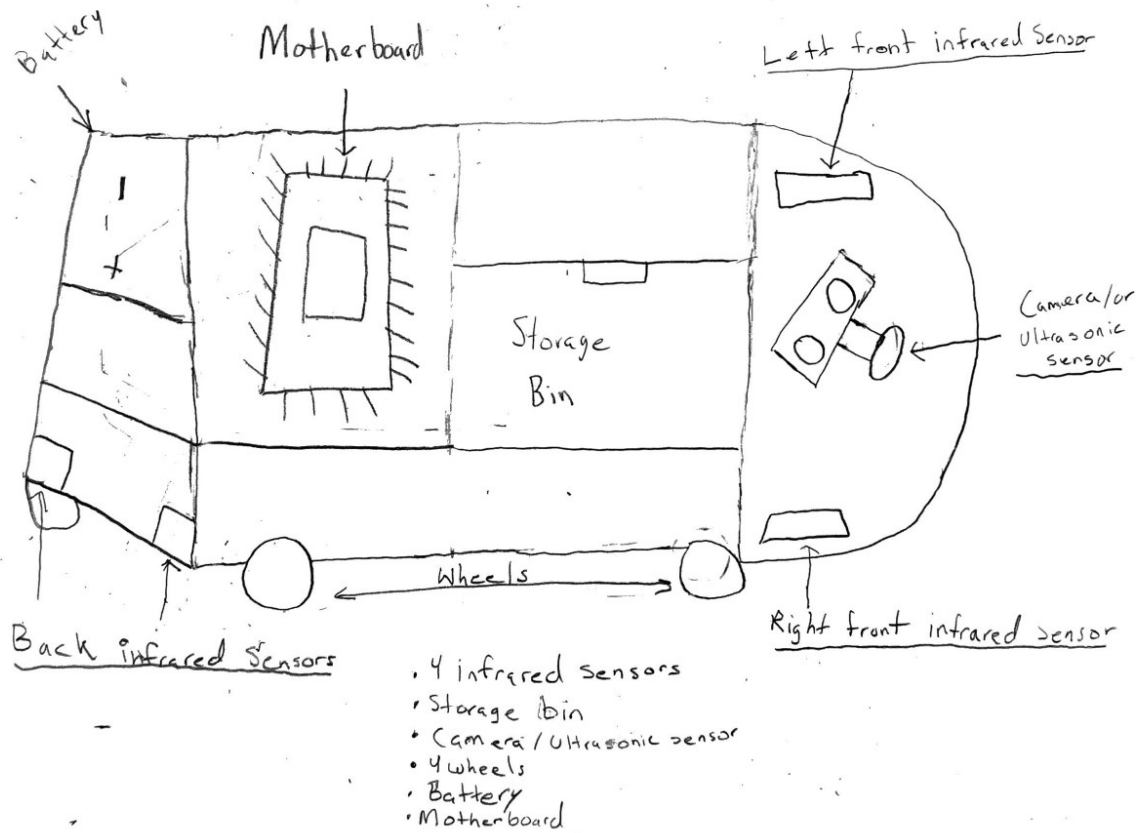 Battery
Motherboard
Left front infrared Sensor
-
+
Camera/or
Ultrasonic
sensor
Storage
Bin
Wheels
Back infrared Sensors
Right front infrared sensor
• 4 infrared sensors
• Storage bin
• Camera/Ultrasonic sensor
• 4 wheels
• Battery
• Motherboard